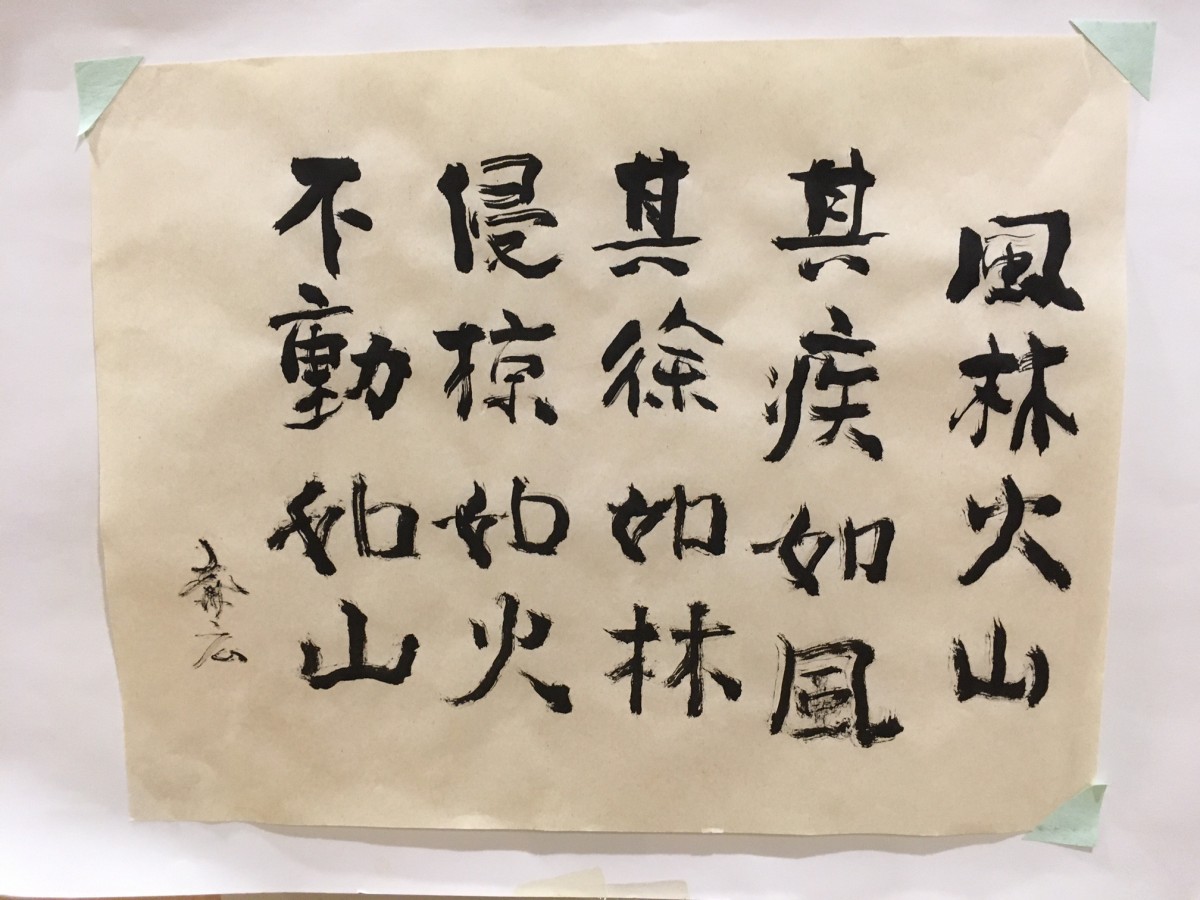 風林火山
其疾如風
其徐如林
侵掠如火
不動如山